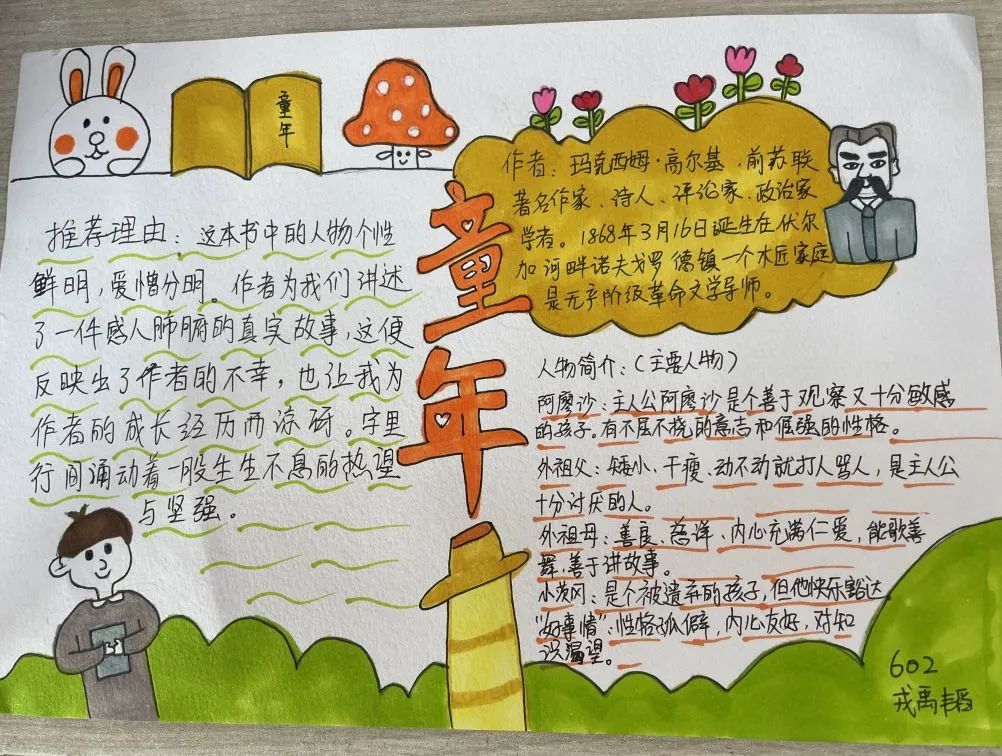 童年
童年
推荐理由：这本书中的人物个性
鲜明，爱憎分明。作者为我们讲述
了一件感人肺腑的真实故事，这便
反映出了作者的不幸，也让我为
作者的成长经历而谅讶。字里
行间涌动着一股生生不息的热望
与坚强。
作者：玛克西姆·高尔基，前苏联
著名作家、诗人、评论家、政治家
学者。1868年3月16日诞生在伏尔
加河畔诺夫戈罗德镇一个木匠家庭
是无产阶级革命文学导师。
人物简介：（主要人物）
阿廖沙：主人公阿廖沙是个善于观察又十分敏感
的孩子。有不屈不挠的意志和倔强的性格。
外祖父：矮小、干瘦、动不动就打人骂人，是主人公
十分讨厌的人。
外祖母：善良、慈祥、内心充满仁爱，能歌善
舞，善于讲故事。
小茨冈：是个被遗弃的孩子，但他快乐豁达
“好事情”：性格孤僻，内心友好，对知
识渴望。
602
戎禹